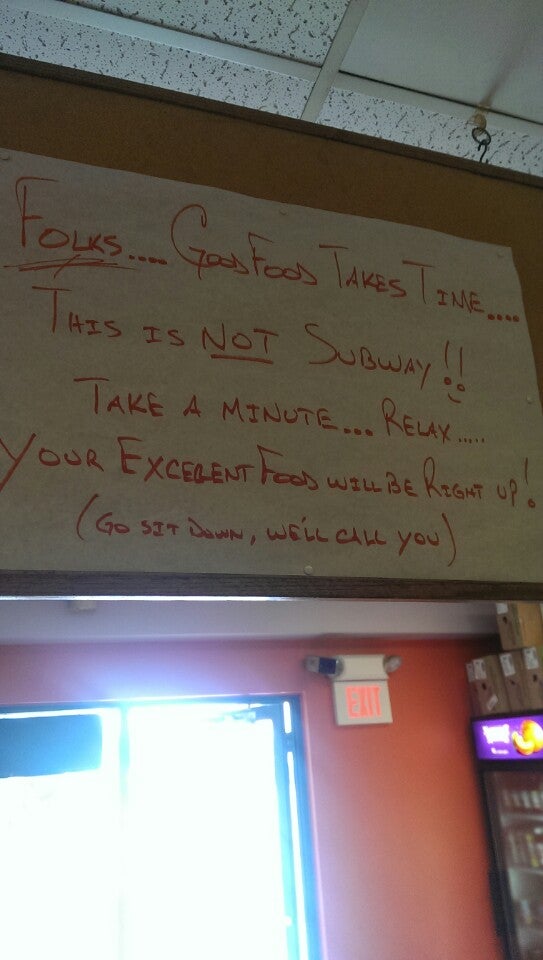 FOLKS.... GOOD FOOD TAKES TIME....
THIS IS NOT SUBWAY!!
TAKE A MINUTE... RELAX.....
YOUR EXCELENT FOOD WILL BE RIGHT UP!
(GO SIT DOWN, WE'LL CALL YOU)
EXIT